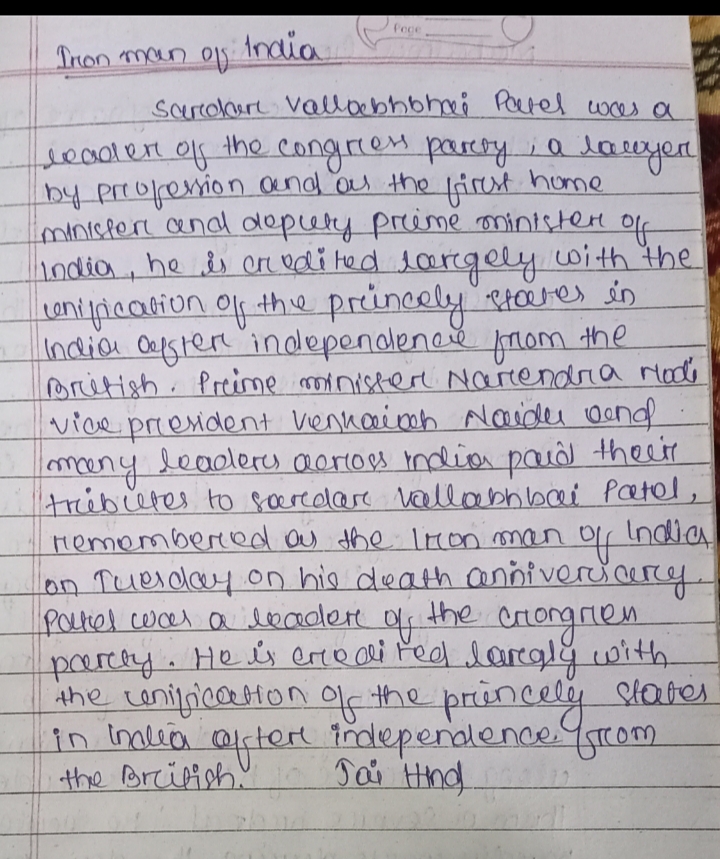 Page
Iron man of India
Sardar Vallabhbhai Patel was a
leader of the congress party, a lawyer
by profession and as the first home
minister and deputy prime minister of
India, he is credited largely with the
unification of the princely states in
India after independence from the
British. Prime minister Narendra Modi
vice president Venkaiah Naidu and
many leaders across India paid their
tributes to sardar Vallabhbai Patel,
remembered as the Iron man of India
on Tuesday on his death anniversary.
Patel was a leader of the crongress
party. He is credited largly with
the unification of the princely states
in India after independence from
the British. Jai Hind